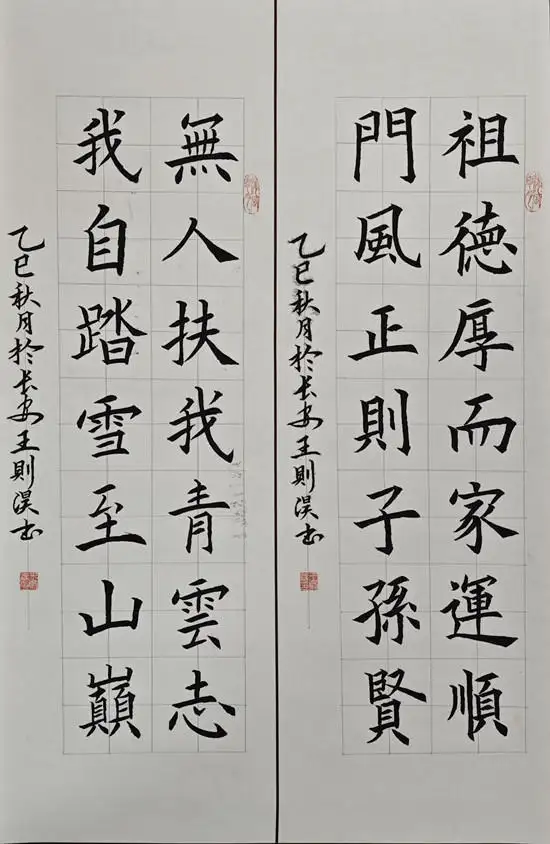 祖德厚而家運順
門風正則子孫賢
乙巳秋月於长安王則淏书
無人扶我青雲志
我自踏雪至山巔
乙巳秋月於长安王則淏书